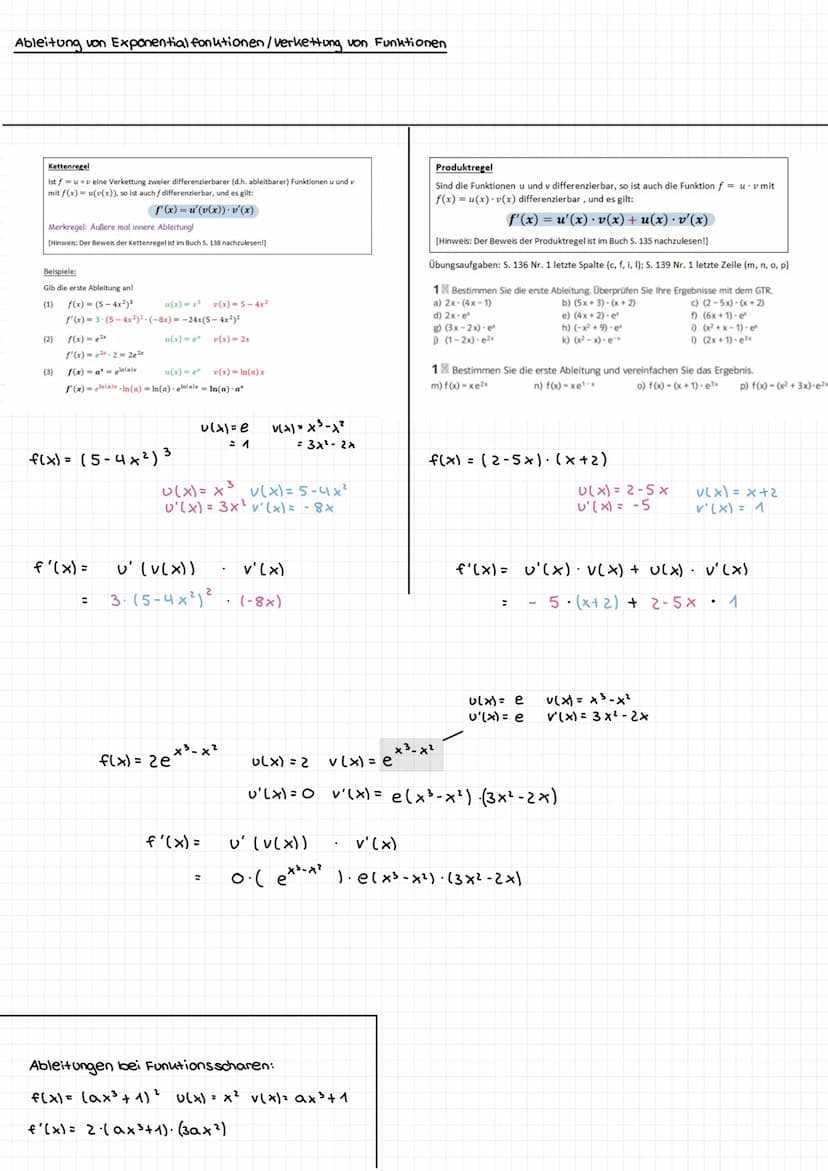 Ableitung von Exponentialfunktionen/Verkettung von Funktionen
Kettenregel
Ist f = u ∘ v eine Verkettung zweier differenzierbarer (d.h. ableitbarer) Funktionen u und v
mit f(x) = u(v(x)), so ist auch f differenzierbar, und es gilt:
f'(x) = u'(v(x)) · v'(x)
Merkregel: Äußere mal innere Ableitung!
[Hinweis: Der Beweis der Kettenregel ist im Buch S. 138 nachzulesen!]
Beispiele:
Gib die erste Ableitung an!
(1) f(x) = (5 − 4x²)³ u(x) = x³ v(x) = 5 − 4x²
f'(x) = 3 · (5 − 4x²)² · (−8x) = −24x(5 − 4x²)²
(2) f(x) = e²ˣ u(x) = eˣ v(x) = 2x
f'(x) = e²ˣ · 2 = 2e²ˣ
(3) f(x) = aˣ = e^ln(a)x u(x) = eˣ v(x) = ln(a) x
f'(x) = e^ln(a)x · ln(a) = ln(a) · e^ln(a)x = ln(a) · aˣ
Produktregel
Sind die Funktionen u und v differenzierbar, so ist auch die Funktion f = u · v mit
f(x) = u(x) · v(x) differenzierbar , und es gilt:
f'(x) = u'(x) · v(x) + u(x) · v'(x)
[Hinweis: Der Beweis der Produktregel ist im Buch S. 135 nachzulesen!]
Übungsaufgaben: S. 136 Nr. 1 letzte Spalte (c, f, i, l); S. 139 Nr. 1 letzte Zeile (m, n, o, p)
1 Bestimmen Sie die erste Ableitung. Überprüfen Sie Ihre Ergebnisse mit dem GTR.
a) 2x · (4x − 1) b) (5x + 3) · (x + 2) c) (2 − 5x) · (x + 2)
d) 2x · eˣ e) (4x + 2) · eˣ f) (6x + 1) · eˣ
g) (3x − 2x) · eˣ h) (−x² + 9) · eˣ i) (x² + x − 1) · eˣ
j) (1 − 2x) · e²ˣ k) (x² − x) · e⁻ˣ l) (2x + 1) · e³ˣ
1 Bestimmen Sie die erste Ableitung und vereinfachen Sie das Ergebnis.
m) f(x) = x e²ˣ n) f(x) = x e¹⁻ˣ o) f(x) = (x + 1) · e³ˣ p) f(x) = (x² + 3x) · e²ˣ
u(x) = e v(x) = x³-x²
= 1 = 3x² - 2x
f(x) = (5-4x²)³
u(x) = x³ v(x) = 5-4x²
u'(x) = 3x² v'(x) = -8x
f'(x) = u'(v(x)) · v'(x)
= 3·(5-4x²)² · (-8x)
f(x) = (2-5x)·(x+2)
u(x) = 2-5x v(x) = x+2
u'(x) = -5 v'(x) = 1
f'(x) = u'(x) · v(x) + u(x) · v'(x)
= - 5 ·(x+2) + 2-5x · 1
u(x) = e v(x) = x³-x²
u'(x) = e v'(x) = 3x²-2x
f(x) = 2e^x³-x² u(x) = 2 v(x) = e^x³-x²
u'(x) = 0 v'(x) = e(x³-x²)·(3x²-2x)
f'(x) = u'(v(x)) · v'(x)
= 0·( e^x³-x² )·e(x³-x²)·(3x²-2x)
Ableitungen bei Funktionsscharen:
f(x) = (ax³+1)² u(x) = x² v(x) = ax³+1
f'(x) = 2·(ax³+1)·(3ax²)